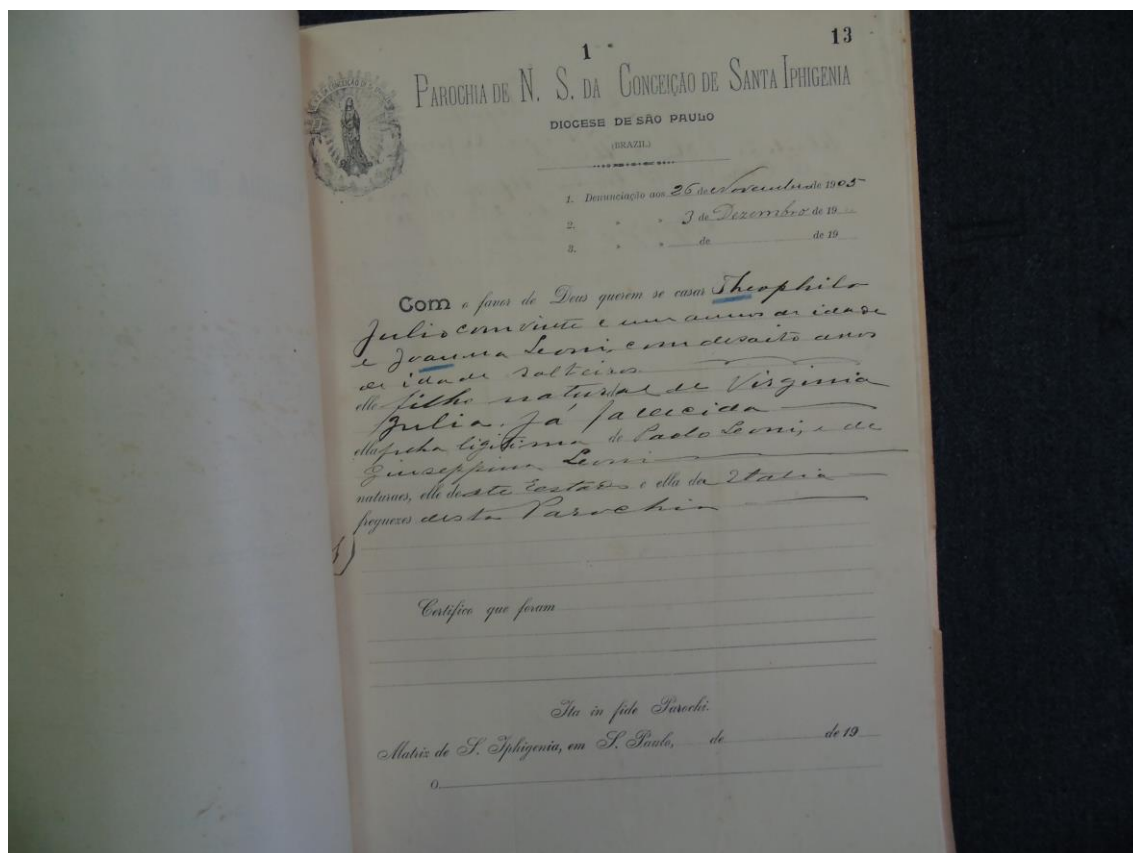 1
13
PAROCHIA DE N. S. DA CONCEIÇÃO DE SANTA IPHIGENIA
DIOCESE DE SÃO PAULO
(BRAZIL)
1. Denunciação aos 26 de Novembro de 1905
2. " " 3 de Dezembro de 19
3. " " de de 19
Com o favor de Deus querem se casar Theophilo
Julio com vinte e um annos de idade
e Joanna Leoni, com desoito anos
de idade solteiros
elle filho natural de Virginia
Julia já fallecida
ella filha ligitima de Paolo Leoni, e de
Giuseppina Leoni
naturaes, elle deste Estado e ella da Italia
freguezes desta Parochia
Certifico que foram
Ita in fide Parochi.
Matriz de S. Iphigenia, em S. Paulo, de de 19
O